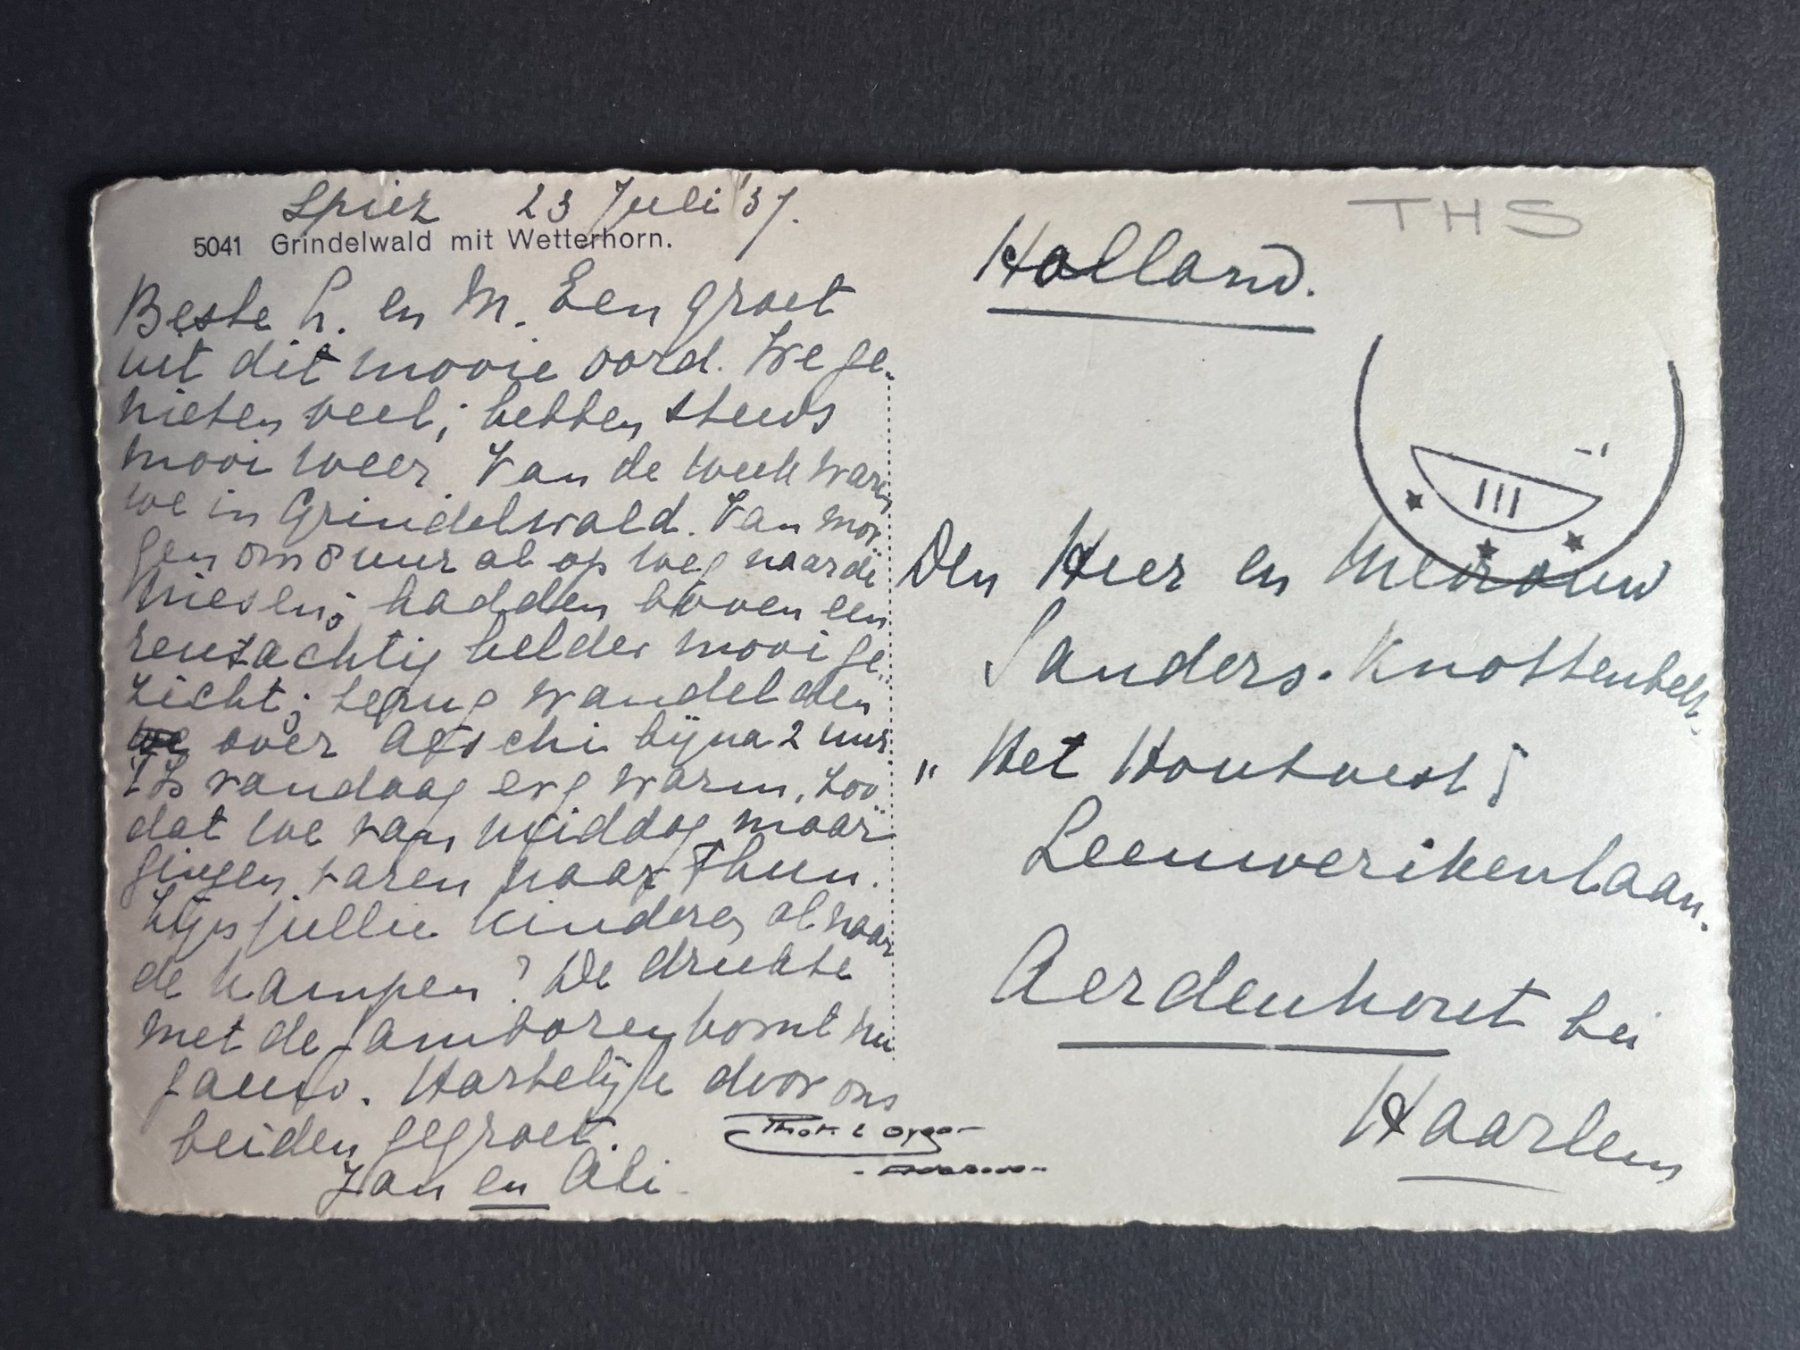 Spiez 23 Juli '37.
5041 Grindelwald mit Wetterhorn.
Beste L. en M. Een groet
uit dit mooie oord. We ge-
nieten veel; hebben steeds
mooi weer Van de week waren
we in Grindelwald. Van mor-
gen om 8 uur al op weg naar de
Niesen; hadden boven een
reusachtig helder mooi ge-
zicht; terug wandelden
we over Aeschi bijna 2 uur.
't Is vandaag erg warm, zoo
dat we van middag maar
gingen varen naar Thun.
Zijn jullie kinderen al naar
de kampen? De drukte
met de Jamboree komt nu
gauw. Hartelijk door ons
beiden gegroet.
Jan en Ali
THS
Holland.
III
Den Heer en Mevrouw
Sanders-Knottenbelt
"Het Houtnest"
Leeuwerikenlaan.
Aerdenhout bei
Haarlem